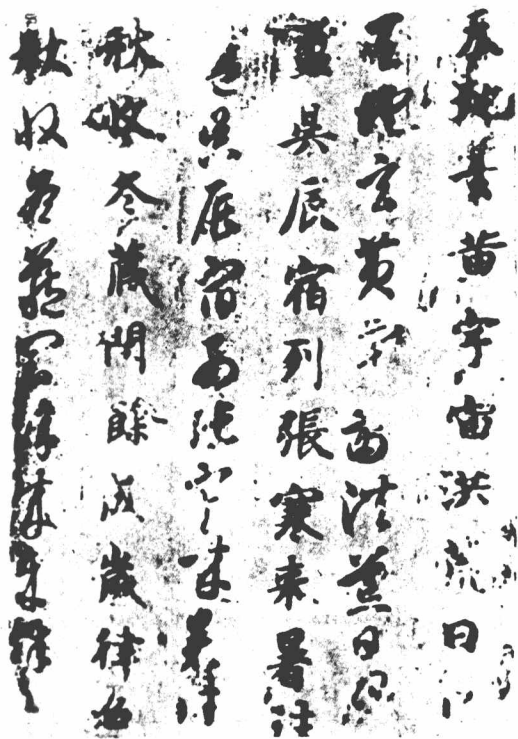 黃宇宙洪荒日月
玄黄宇宙洪荒日月
盈昃辰宿列張寒来暑往
盈昃辰宿列張寒来暑往
秋收冬藏閏餘成歲律吕
秋收冬藏閏餘成歲律